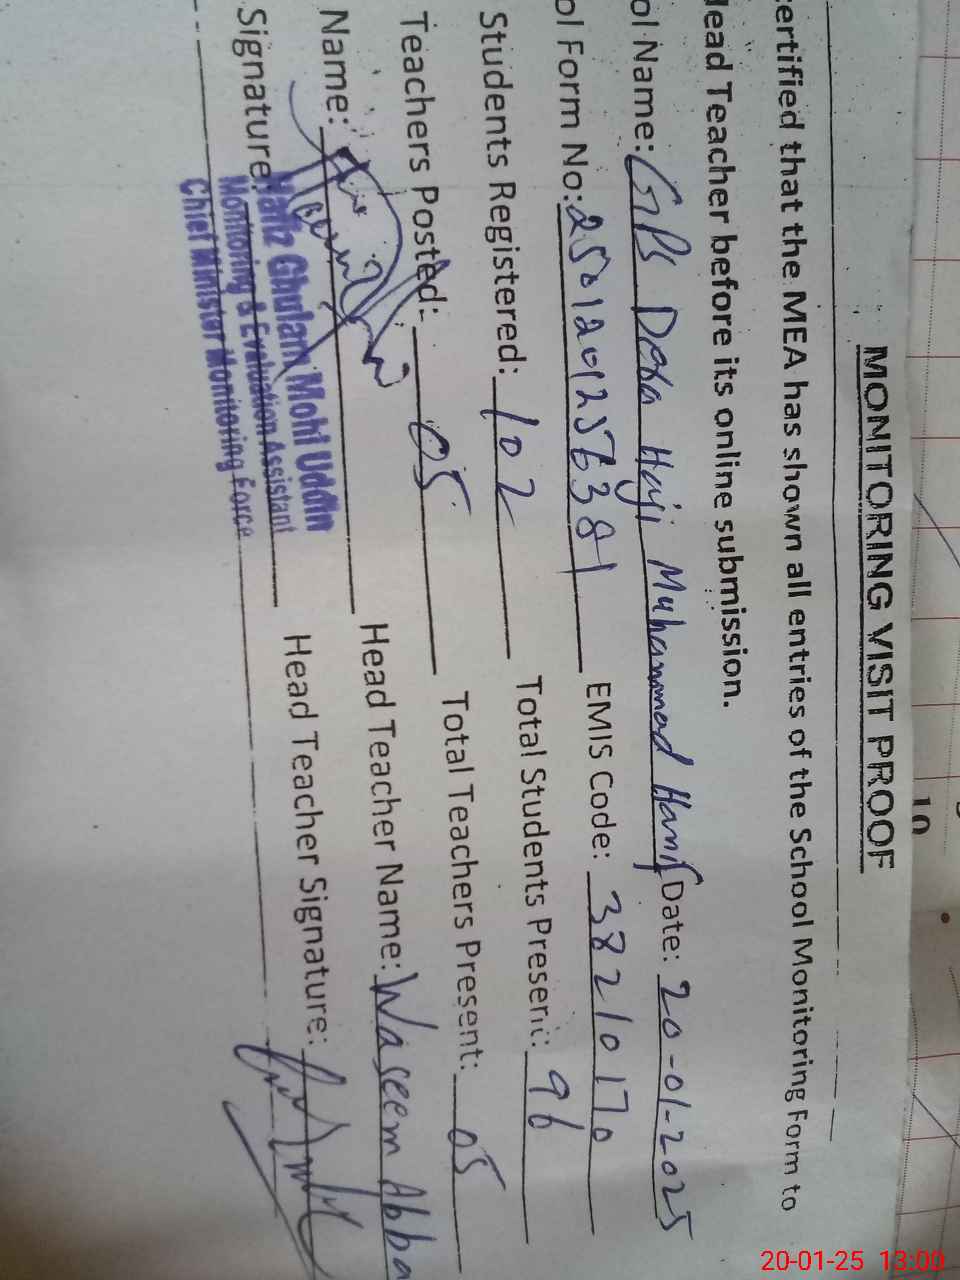 10
MONITORING VISIT PROOF
ertified that the MEA has shown all entries of the School Monitoring Form to
lead Teacher before its online submission.
ol Name: GPS Dera Haji Muhammad Hanif Date: 20-01-2025
ol Form No: EMIS Code: 38210170
Students Registered: 102 Total Students Present: 96
Teachers Posted: 05 Total Teachers Present: 05
Name: Head Teacher Name: Waseem Abba
Signature: Head Teacher Signature:
Hafiz Ghulam Mohi Uddin
Monitoring & Evaluation Assistant
Chief Minister Monitoring Force
20-01-25 13:00